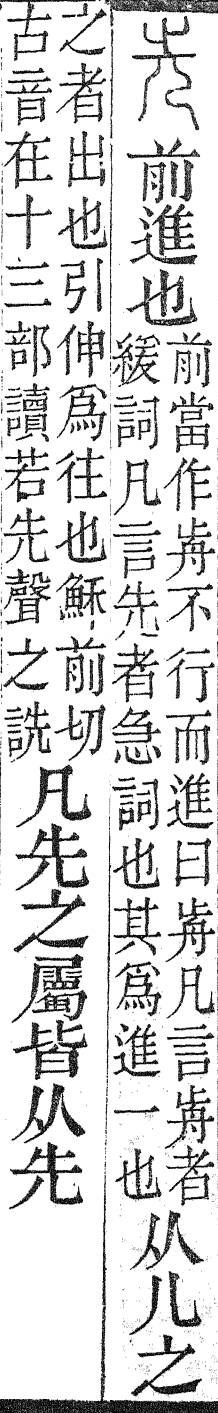 先 前進也
前當作歬不行而進曰歬凡言歬者
緩詞凡言先者急詞也其爲進一也
从儿之
之者出也引伸爲往也穌前切
古音在十三部讀若先聲之詵
凡先之屬皆从先